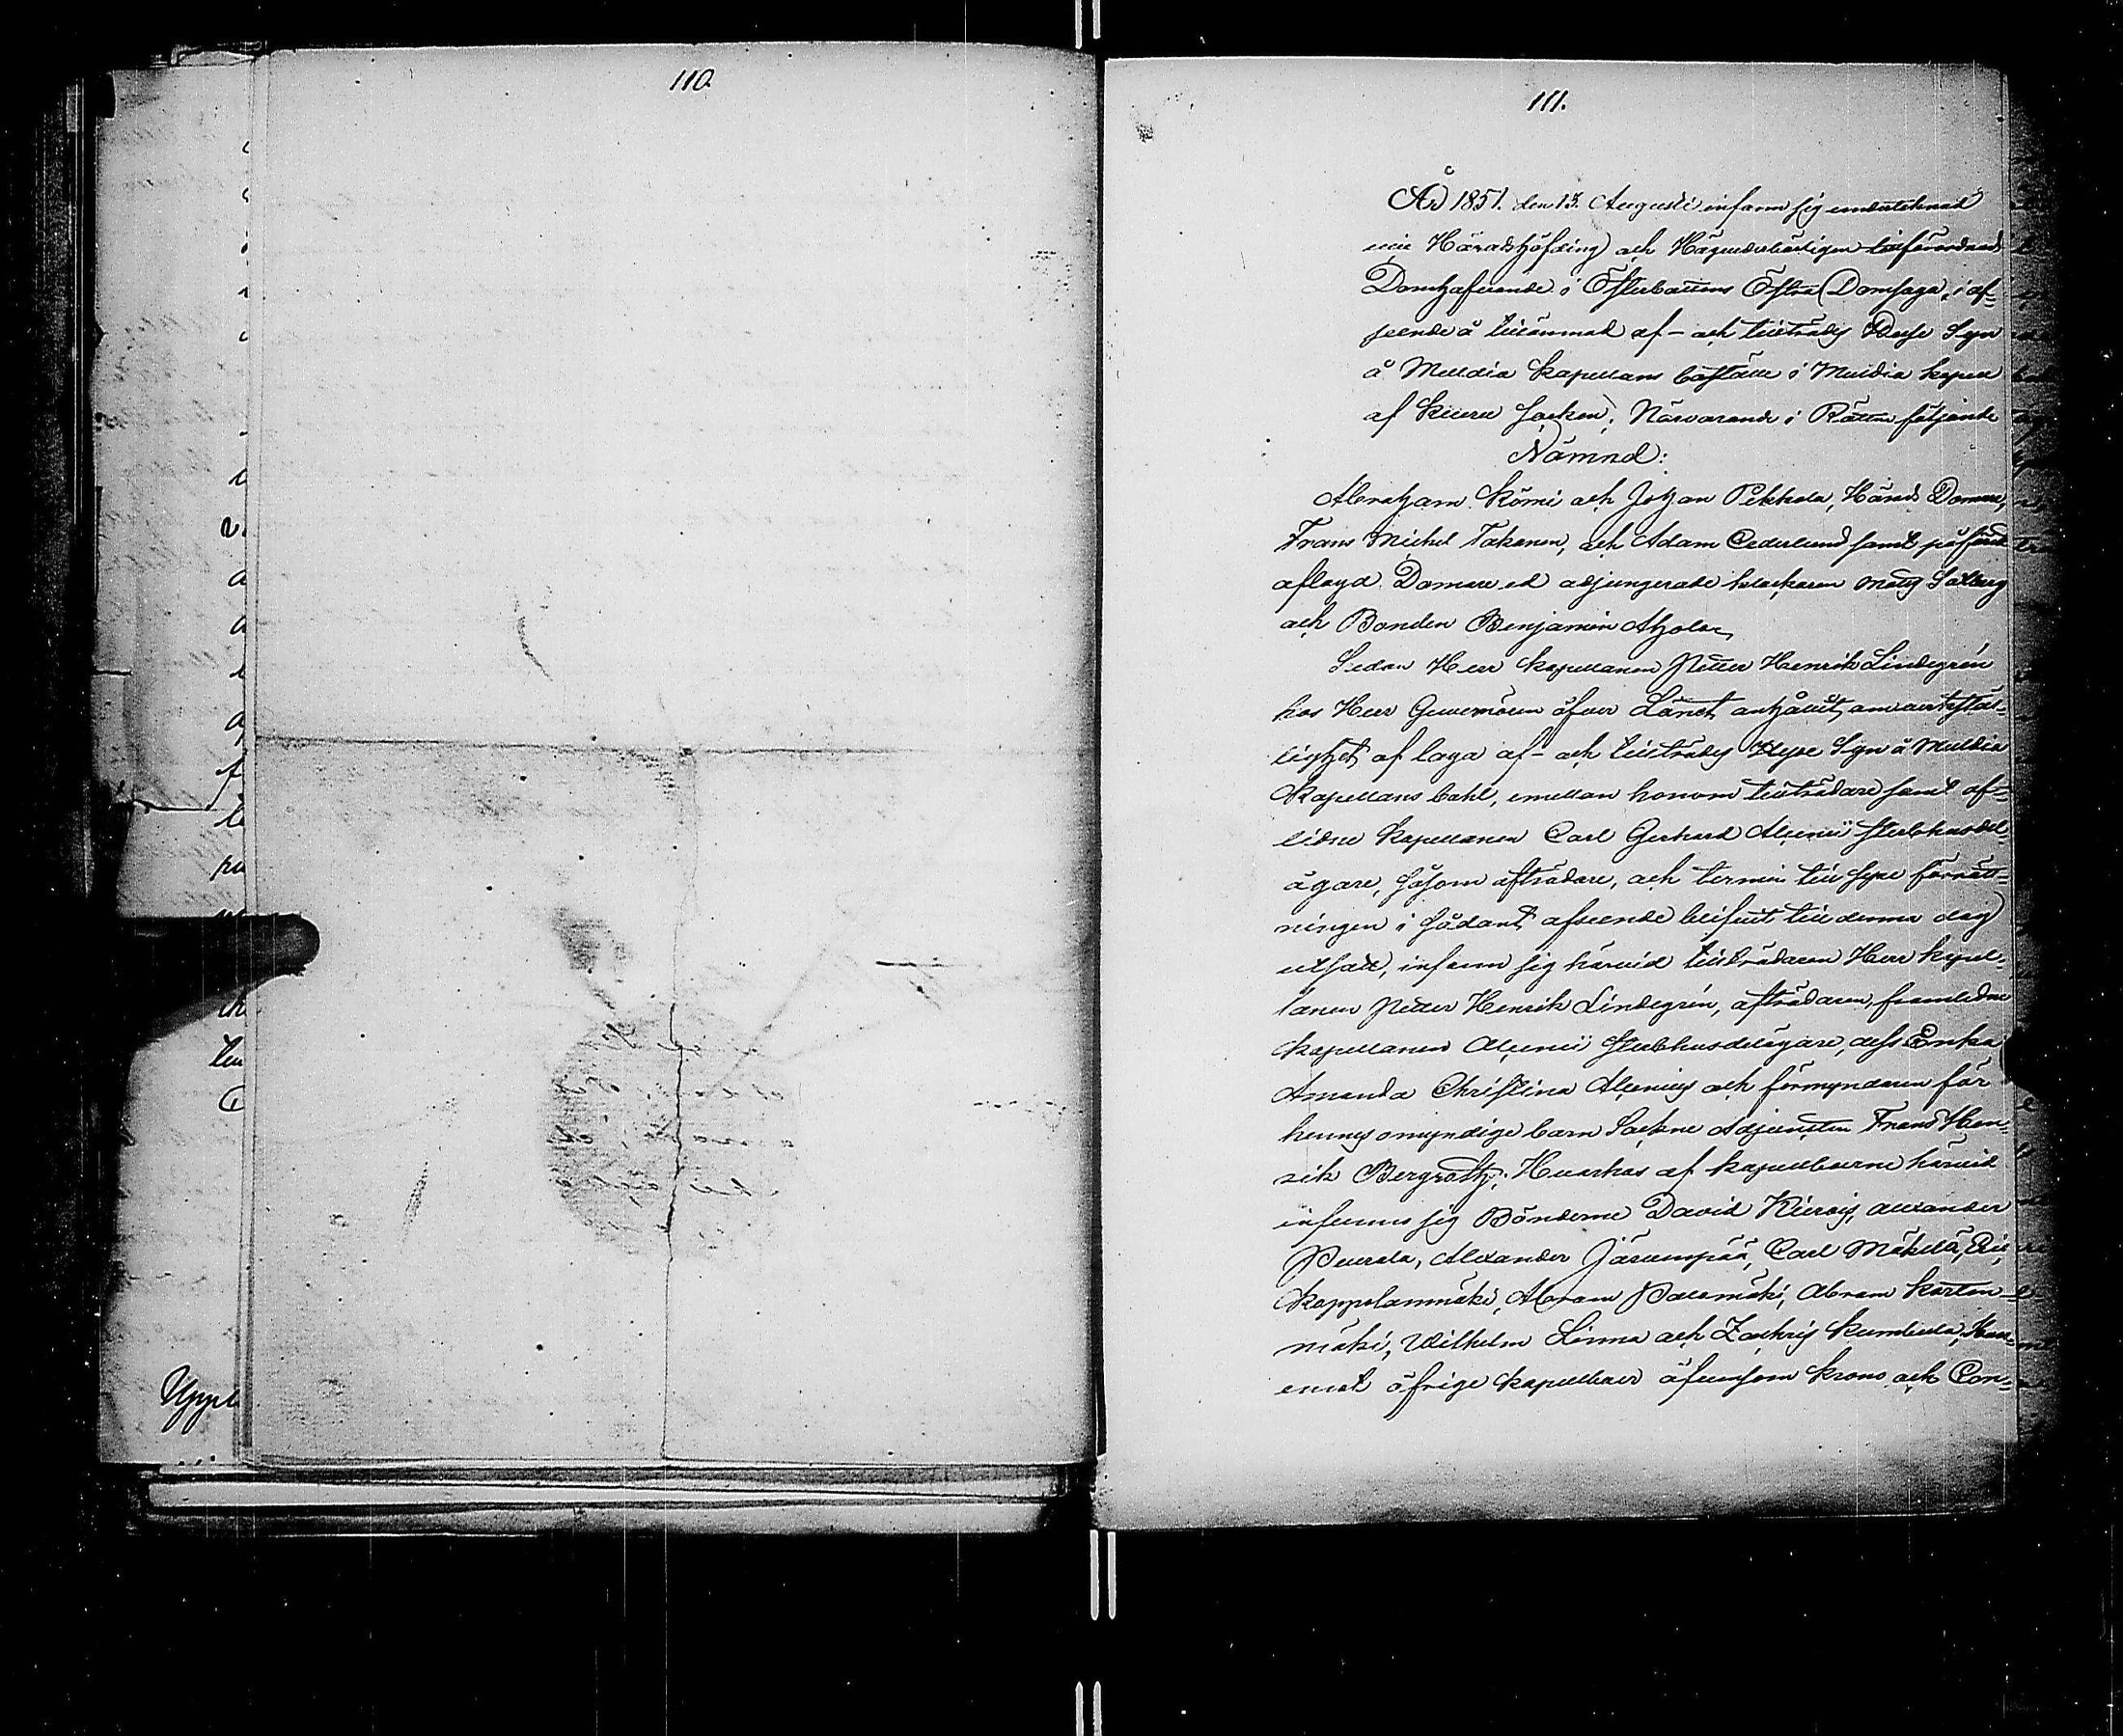 110.
111.
År 1851. den 13. Augusti infann sig undertecknad
vice Häradshöfding och Hägnadsvärdigen tillförordnad
Domhafvande i Österbottens Östra Domsaga, i af-
seende å tillämnad af- och tillträdes Huse Syn
å Multia Kapellans boställe i Multia kapell
af Keuru Socken; Närvarande i Rätten följande
Nämnd:
Abraham Kömi och Johan Pekkola, Härads Domare,
Frans Michel Takanen, och Adam Cederlund samt på förut
aflagd Domare ed adjungerade klockaren Mats Salberg
och Bonden Benjamin Ahola
Sedan Herr Kapellanen Petter Henrik Lindegrén
hos Herr Guvernören öfver Länet anhållit om verkstäl-
lighet af laga af- och tillträdes Huse Syn å Multia
Kapellans bohl, emellan honom tillträdare samt af-
lidne Kapellanen Carl Gerhard Alcenii sterbhusdel-
ägare, såsom afträdare, och termin till Syne förrätt-
ningen i sådant afseende blifvit till denna dag
utsatt, infann sig härvid tillträdaren Herr Kapel-
lanen Petter Henrik Lindegrén, afträdaren, framledne
Kapellanen Alcenii Sterbhusdelägare, dess Enka
Amanda Christina Alcenius och förmyndaren för
hennes omyndige barn Sockne Adjuncten Frans Hen-
rik Bergroth; Hvarhos af Kapellboerne härvid
infunno sig Bönderne David Kiiveis, Alexander
Peurala, Alexander Järvenpää, Carl Mäkelä,
Kappelanmäki, Abram Palomäki, Abram Korten-
mäki, Wilhelm Linna och Zachris
emot öfrige Kapellboer äfvensom Krono och Con-
Uppl